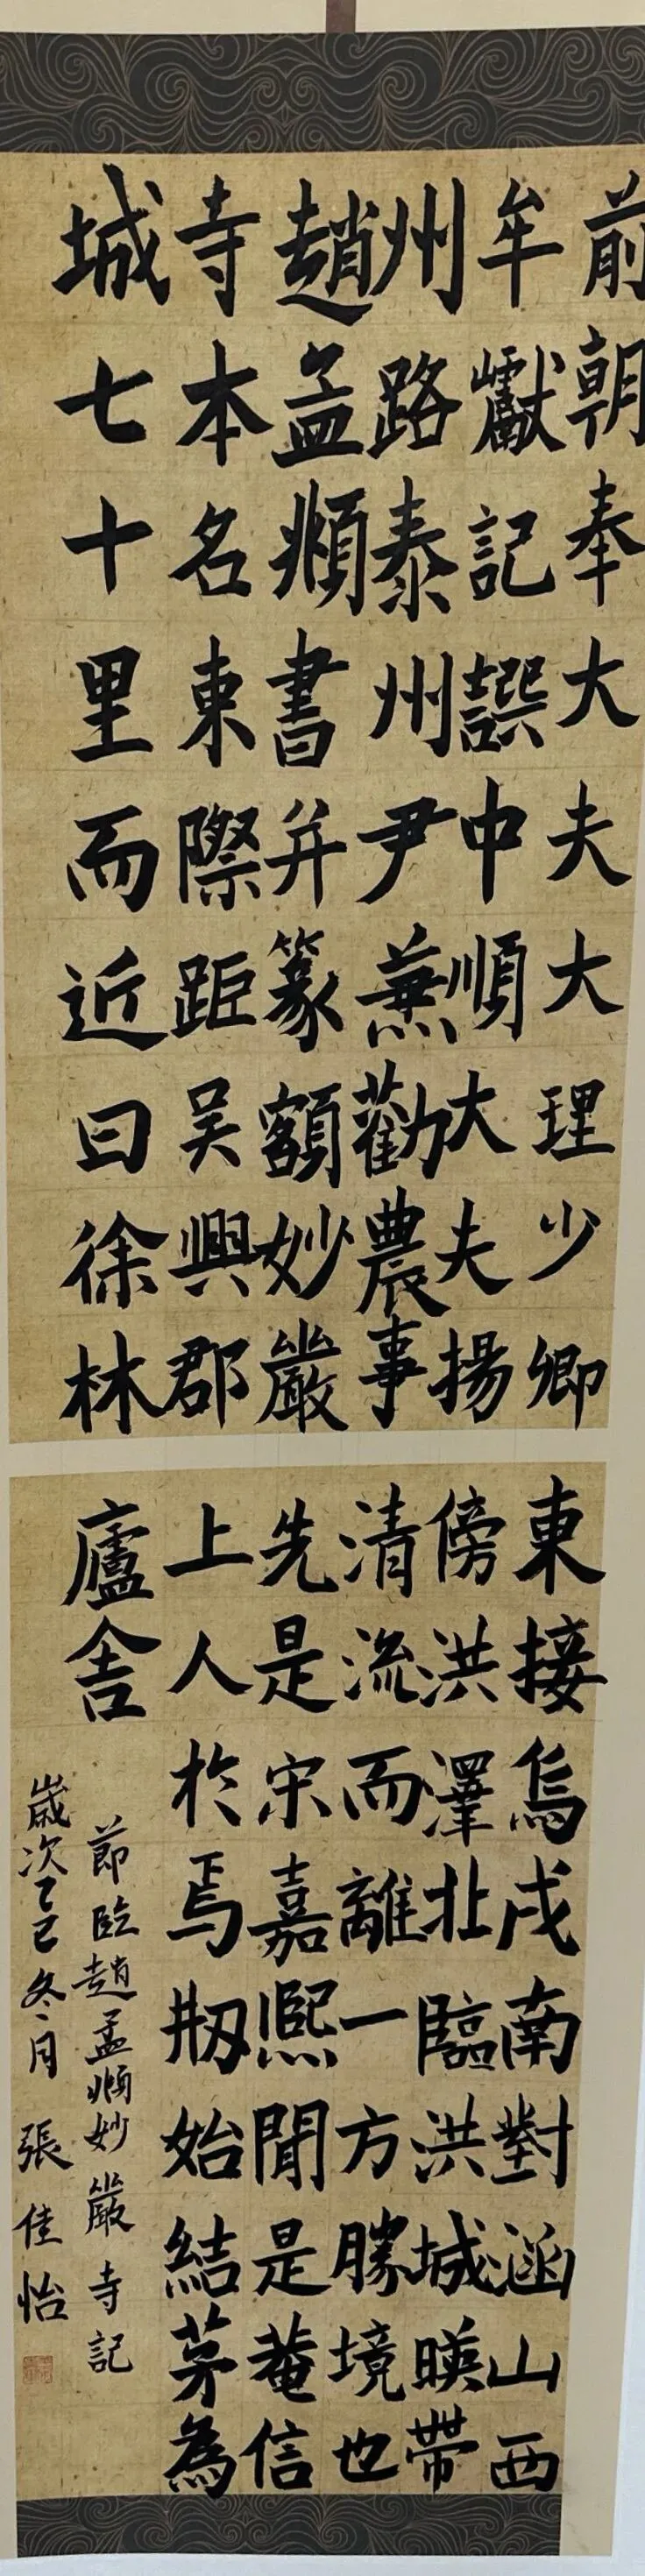 前朝奉大夫大理少卿
牟巘記譔中順大夫揚
州路泰州尹兼勸農事
趙孟頫書并篆額妙嚴
寺本名東際距吴興郡
城七十里而近曰徐林
東接烏戍南對涵山西
傍洪澤北臨洪城暎帶
清流而離一方勝境也
先是宋嘉熙間是菴信
上人於焉剏始結茅為
廬舍
節臨趙孟頫妙嚴寺記
歲次乙巳冬月張佳怡